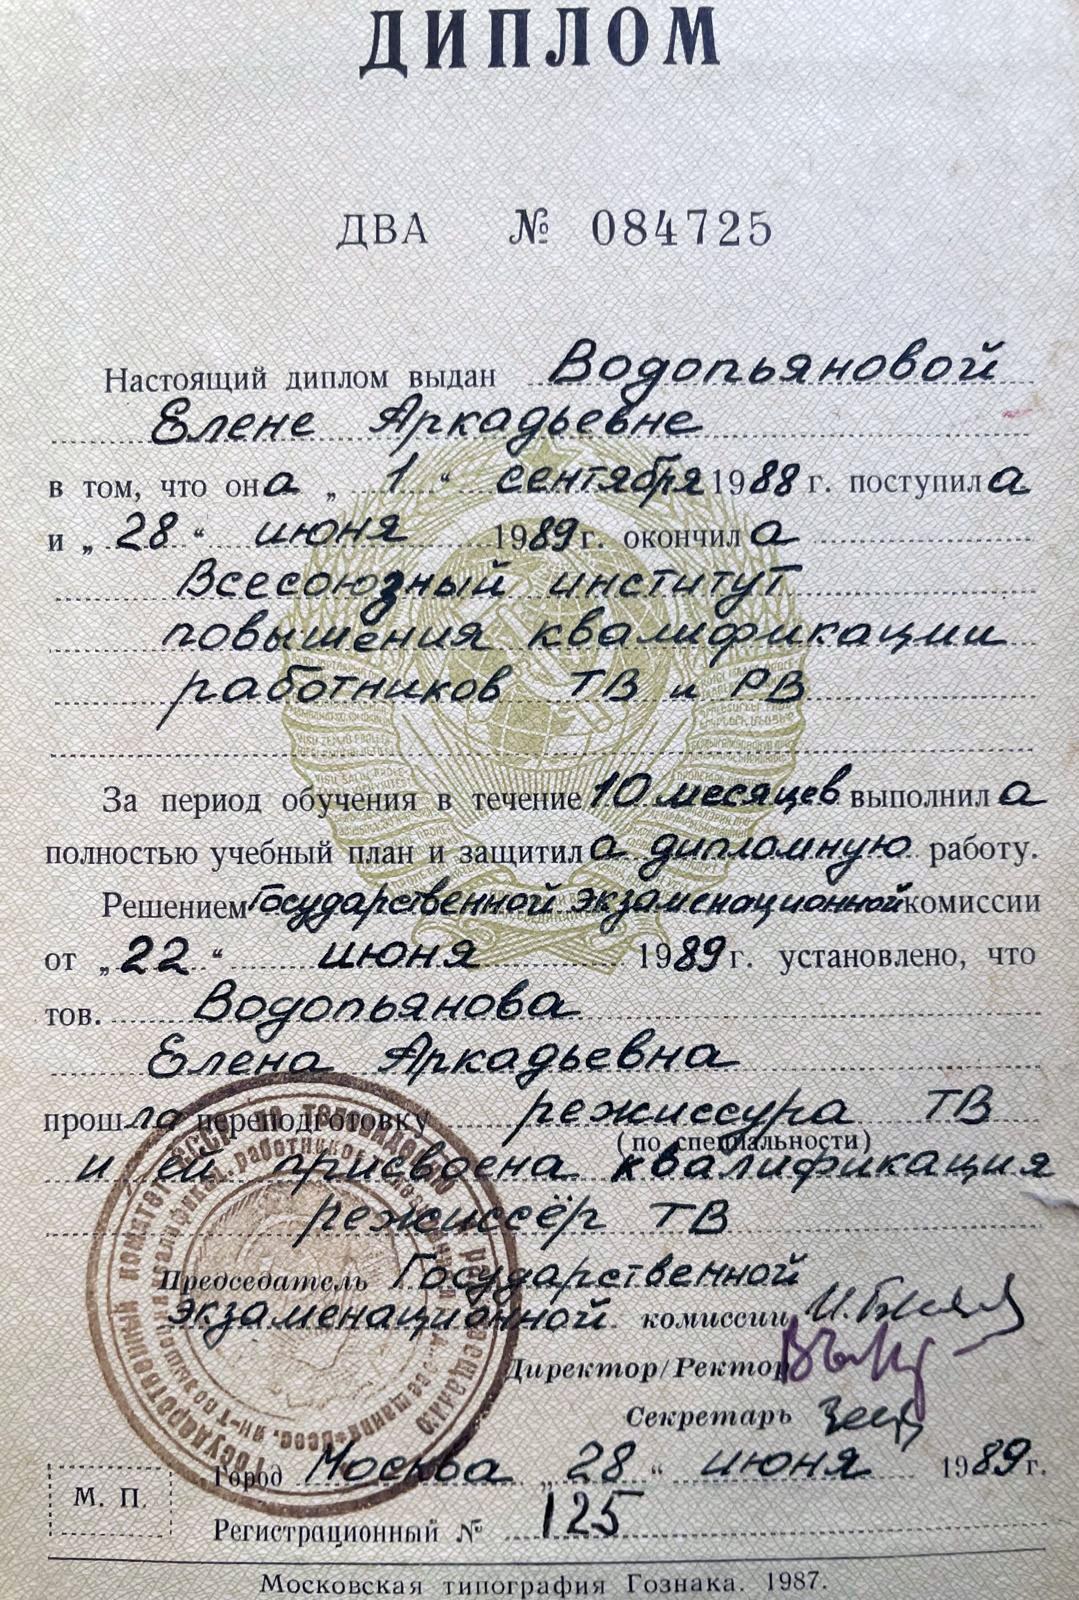 ДИПЛОМ
ДВА № 084725
Настоящий диплом выдан Водопьяновой
Елене Аркадьевне
в том, что она „ 1 “ сентября 1988 г. поступила
и „ 28 “ июня 1989 г. окончила
Всесоюзный институт
повышения квалификации
работников ТВ и РВ
За период обучения в течение 10 месяцев выполнила
полностью учебный план и защитила дипломную работу.
Решением Государственной экзаменационной комиссии
от „ 22 “ июня 1989 г. установлено, что
тов. Водопьянова
Елена Аркадьевна
прошла переподготовку режиссура ТВ
(по специальности)
и ей присвоена квалификация
режиссёр ТВ
Председатель Государственной
экзаменационной комиссии
Директор/Ректор
Секретарь
Город Москва „ 28 “ июня 1989 г.
М. П.
Регистрационный № 125
Московская типография Гознака. 1987.